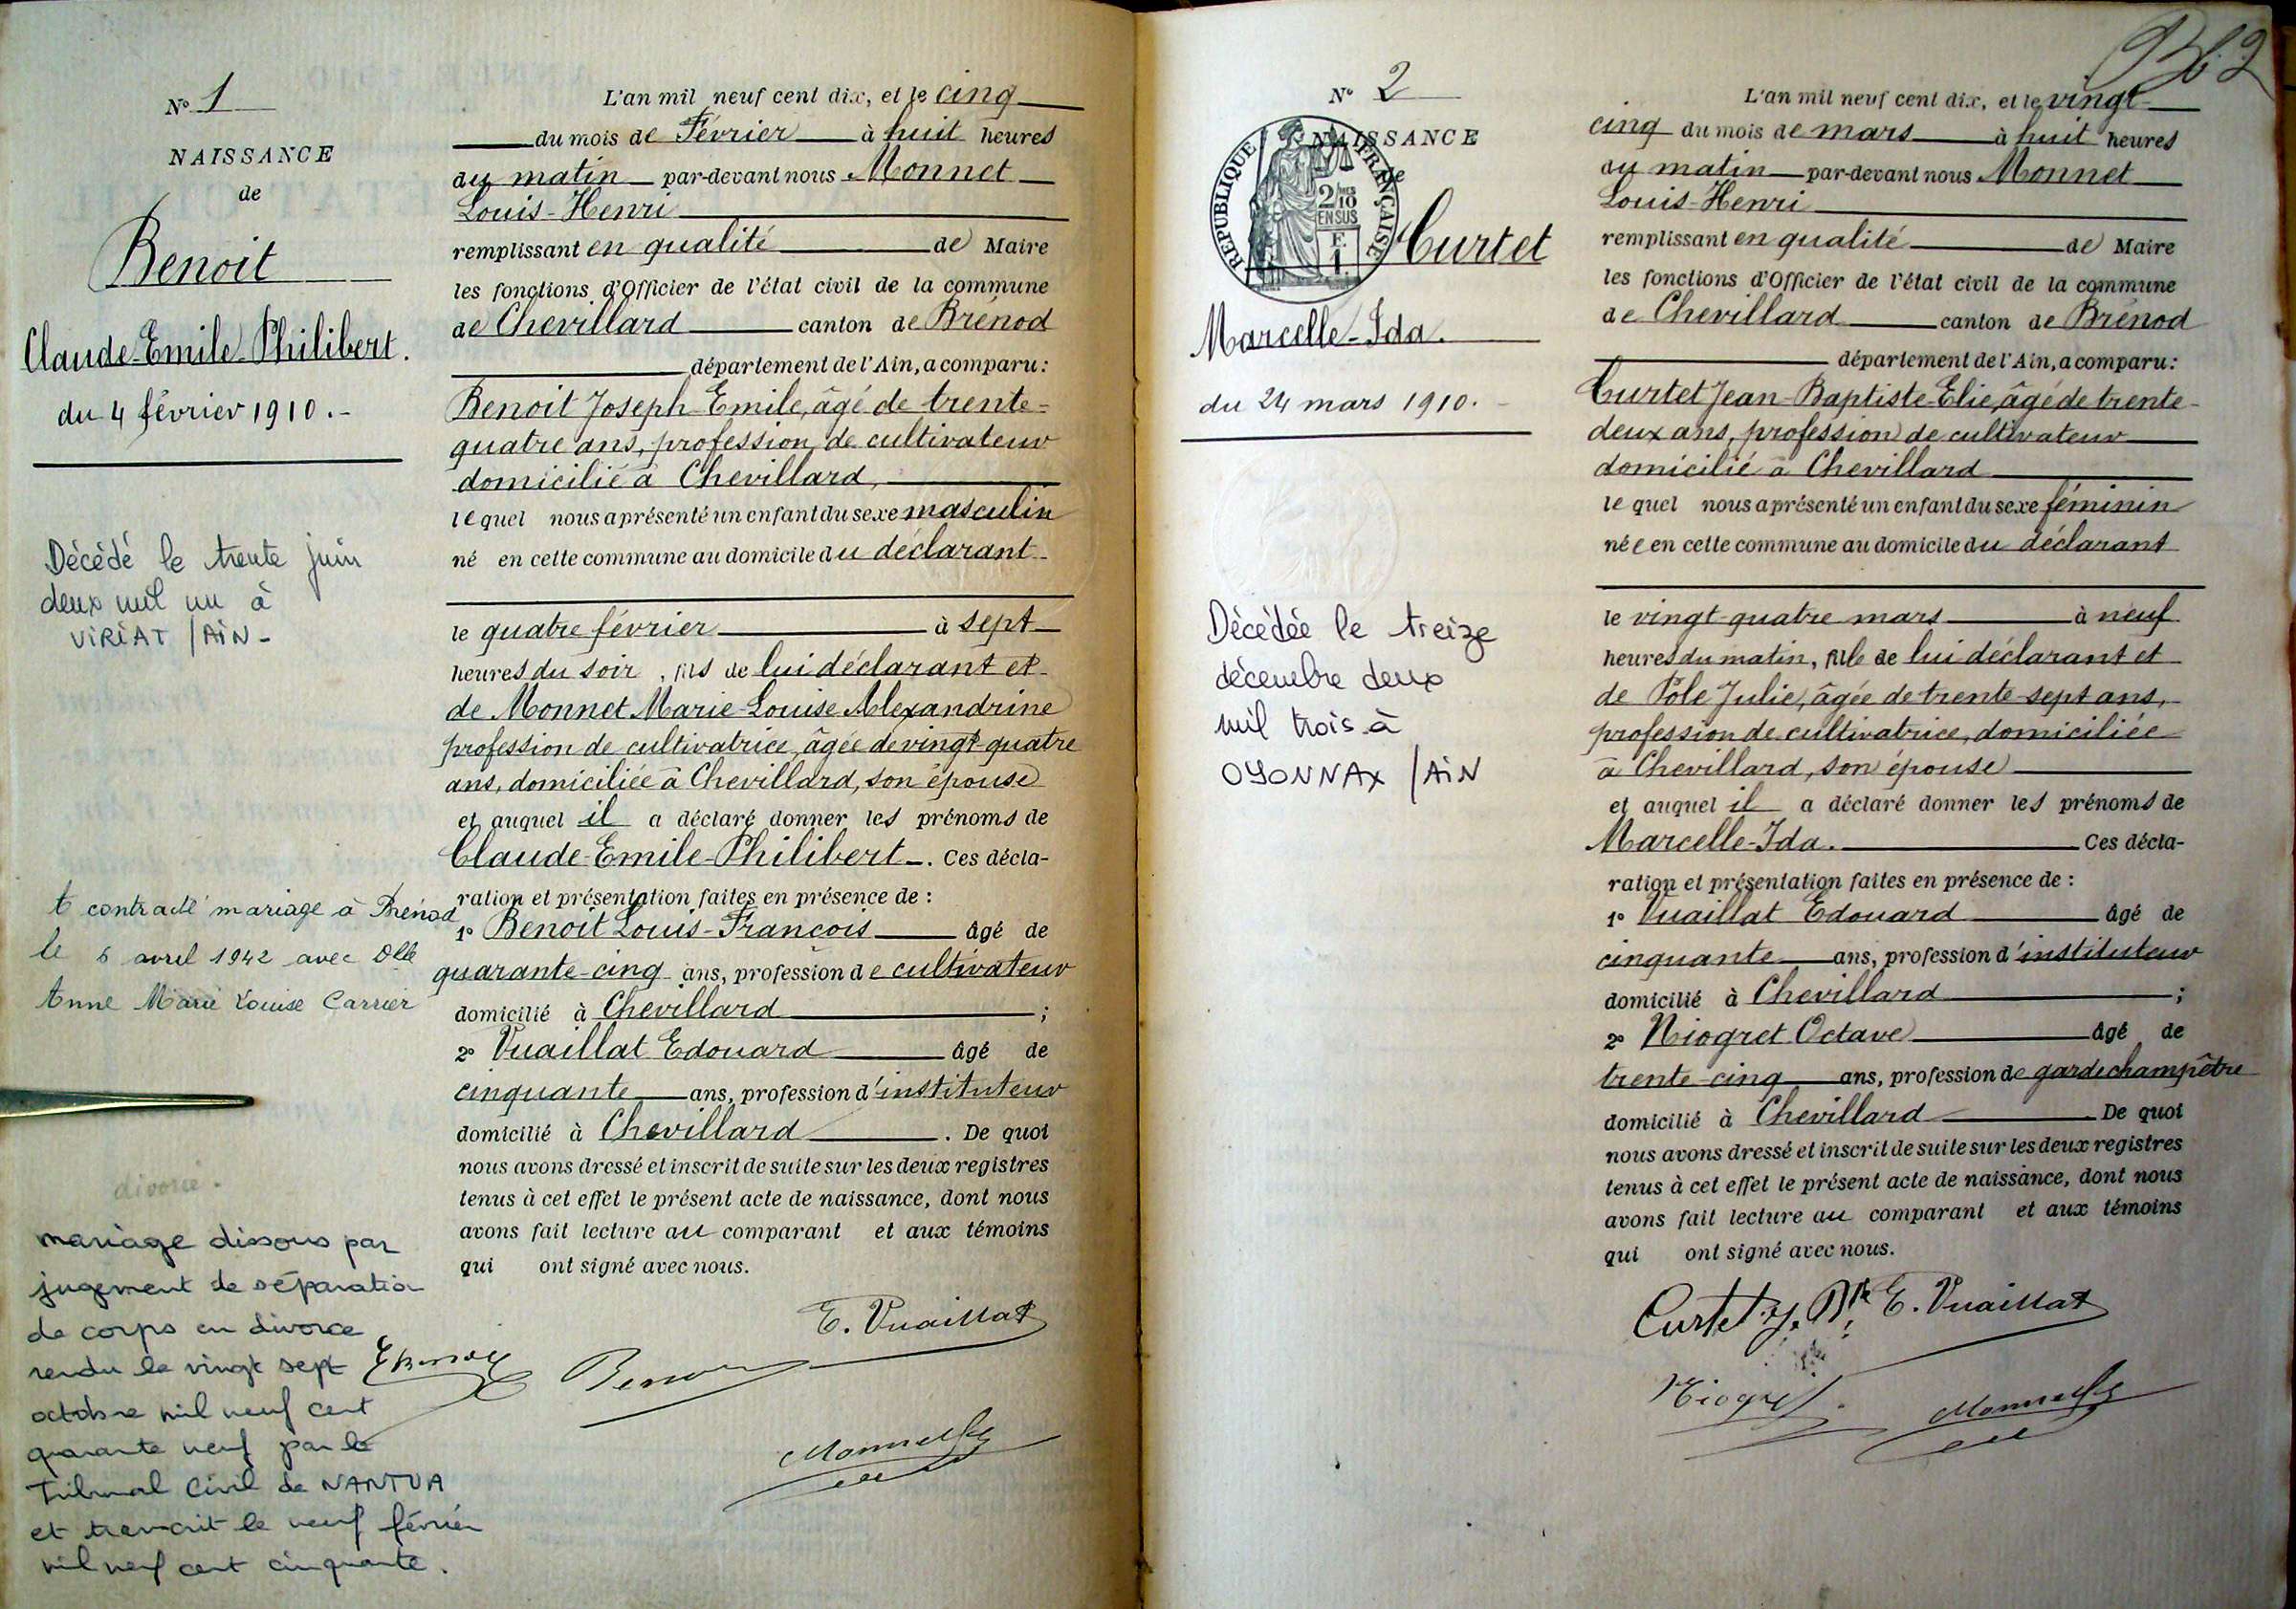 N° 1
NAISSANCE
de
Benoit
Claude-Emile-Philibert.
du 4 février 1910.-
Décédé le trente juin
deux mil un à
VIRIAT / AIN-
A contracté mariage à Brénod
le 6 avril 1942 avec Dlle
Anne Marie Louise Carrier
divorce.
mariage dissous par
jugement de séparation
de corps en divorce
rendu le vingt sept
octobre mil neuf cent
quarante neuf par le
Tribunal Civil de NANTUA
et transcrit le neuf février
mil neuf cent cinquante.
L'an mil neuf cent dix, et le cinq
du mois de Février à huit heures
du matin par-devant nous Monnet
Louis-Henri
remplissant en qualité de Maire
les fonctions d'Officier de l'état civil de la commune
de Chevillard canton de Brénod
département de l'Ain, a comparu:
Benoit Joseph-Emile, âgé de trente-
quatre ans, profession de cultivateur
domicilié à Chevillard,
lequel nous a présenté un enfant du sexe masculin
né en cette commune au domicile du déclarant
le quatre février à sept
heures du soir, fils de lui déclarant et
de Monnet Marie-Louise Alexandrine
profession de cultivatrice, âgée de vingt-quatre
ans, domiciliée à Chevillard, son épouse
et auquel il a déclaré donner les prénoms de
Claude-Emile-Philibert. Ces décla-
ration et présentation faites en présence de :
1° Benoit Louis-François âgé de
quarante-cinq ans, profession de cultivateur
domicilié à Chevillard ;
2° Vuaillat Edouard âgé de
cinquante ans, profession d'instituteur
domicilié à Chevillard. De quoi
nous avons dressé et inscrit de suite sur les deux registres
tenus à cet effet le présent acte de naissance, dont nous
avons fait lecture au comparant et aux témoins
qui ont signé avec nous.
E. Vuaillat
E Benoit
Benoit
Monnet
N° 2
NAISSANCE
de
REPUBLIQUE FRANÇAISE
2/10
EN SUS
F.
1
Curtet
Marcelle-Ida.
du 24 mars 1910.-
Décédée le treize
décembre deux
mil trois à
OYONNAX / AIN
L'an mil neuf cent dix, et le vingt
cinq du mois de mars à huit heures
du matin par-devant nous Monnet
Louis-Henri
remplissant en qualité de Maire
les fonctions d'Officier de l'état civil de la commune
de Chevillard canton de Brénod
département de l'Ain, a comparu:
Curtet Jean-Baptiste-Elie, âgé de trente-
deux ans, profession de cultivateur
domicilié à Chevillard
lequel nous a présenté un enfant du sexe féminin
née en cette commune au domicile du déclarant
le vingt-quatre mars à neuf
heures du matin, fille de lui déclarant et
de Pôle Julie, âgée de trente-sept ans,
profession de cultivatrice, domiciliée
à Chevillard, son épouse
et auquel il a déclaré donner les prénoms de
Marcelle-Ida. Ces décla-
ration et présentation faites en présence de :
1° Vuaillat Edouard âgé de
cinquante ans, profession d'instituteur
domicilié à Chevillard ;
2° Niogret Octave âgé de
trente-cinq ans, profession de garde champêtre
domicilié à Chevillard De quoi
nous avons dressé et inscrit de suite sur les deux registres
tenus à cet effet le présent acte de naissance, dont nous
avons fait lecture au comparant et aux témoins
qui ont signé avec nous.
Curtet J. Bte E. Vuaillat
Niogret
Monnet